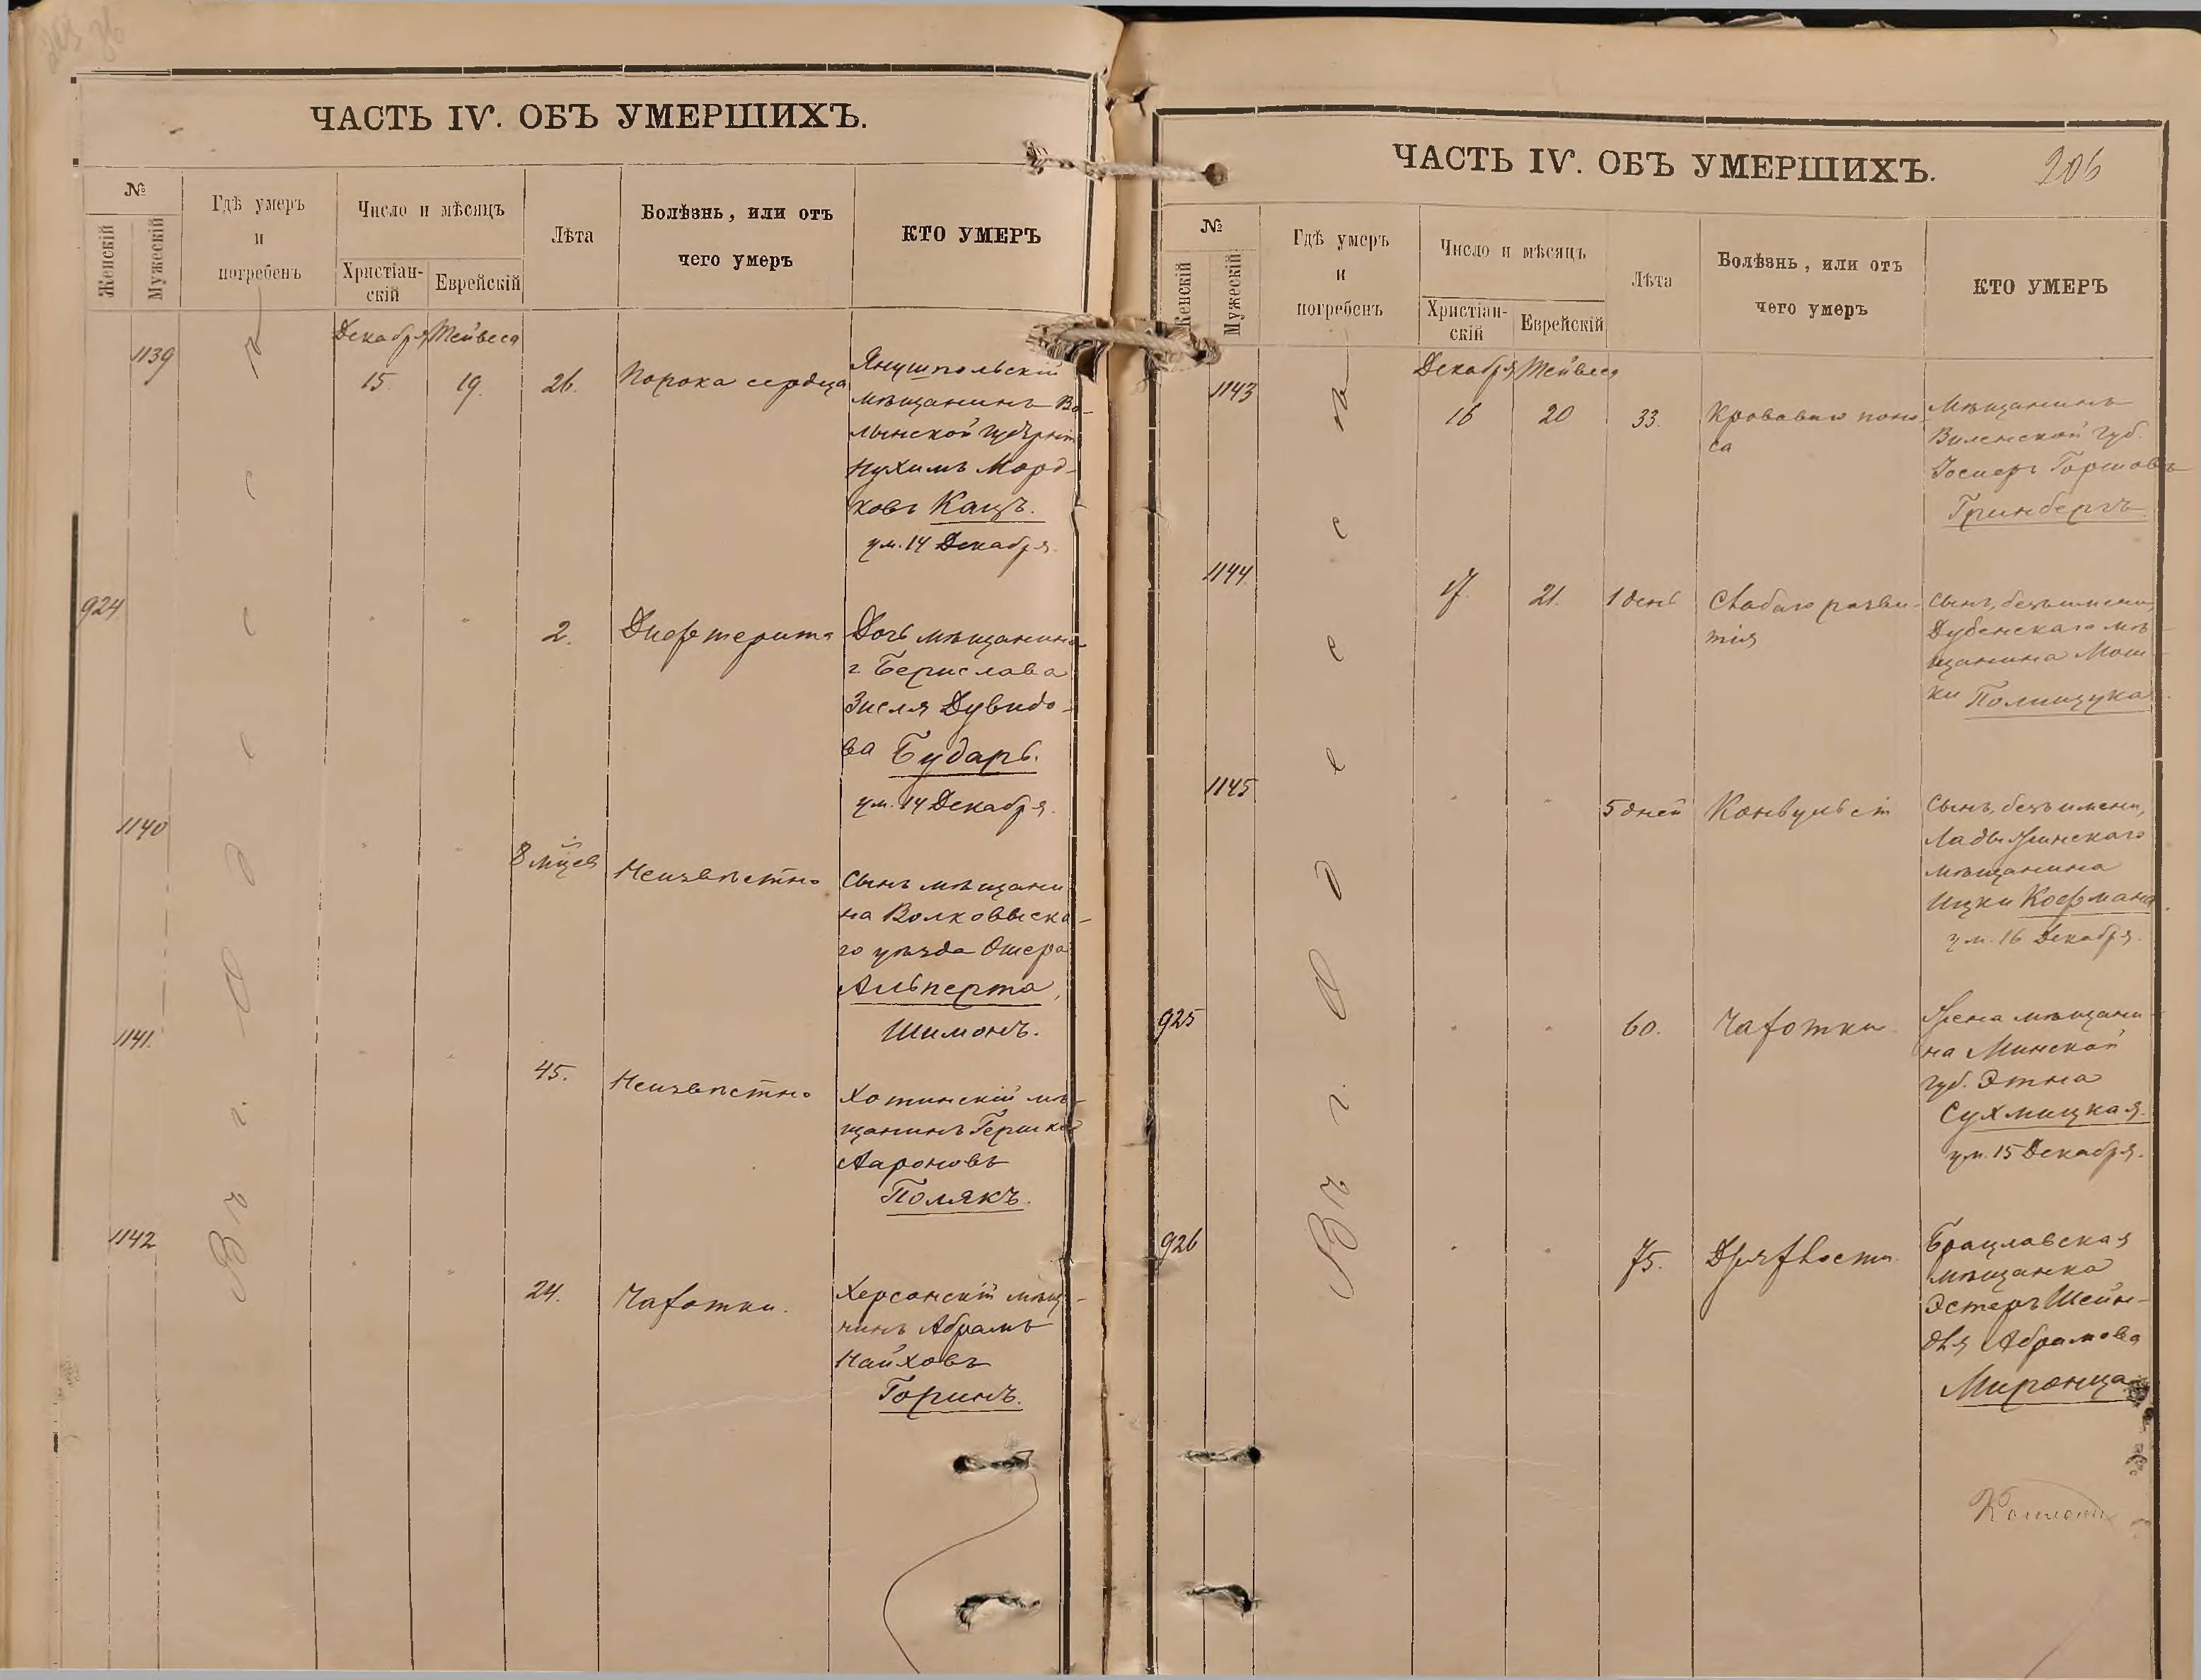 ЧАСТЬ IV. ОБЪ УМЕРШИХЪ.
№
Женскій
Мужескій
Гдѣ умеръ
и
погребенъ
Число и мѣсяцъ
Христіан-
скій
Еврейскій
Лѣта
Болѣзнь, или отъ
чего умеръ
КТО УМЕРЪ
Въ г. Одессѣ
Декабря Тейвеса
1139
15.
19.
26.
Порока сердца
Янушпольскій
мѣщанинъ Во-
лынской губерніи
Нухимъ Морд-
ковъ Кацъ.
ум. 14 Декабря.
924
"
"
2.
Дифтерита
Дочь мѣщанина
г. Берислава
Зисля Дувидо-
ва Бударь.
ум. 14 Декабря.
1140
"
"
8 мцев
Неизвѣстно
Сынъ мѣщани
на Волковыска-
го уѣзда Ошера
Альперта,
Шимонъ.
1141.
"
"
45.
Неизвѣстно
Хотинскій мѣ-
щанинъ Гершко
Аароновъ
Полякъ.
1142
"
"
24.
Чахотки.
Херсонскій мѣщ-
нинъ Абрамъ
Найховъ
Горинъ.
ЧАСТЬ IV. ОБЪ УМЕРШИХЪ.
206
№
Женскій
Мужескій
Гдѣ умеръ
и
погребенъ
Число и мѣсяцъ
Христіан-
скій
Еврейскій
Лѣта
Болѣзнь, или отъ
чего умеръ
КТО УМЕРЪ
Въ г. Одессѣ
Декабря Тейвеса
1143
16
20
33.
Кроваваго поно
са
Мѣщанинъ
Виленской губ.
Іосифъ Горшовъ
Гринбергъ
1144.
17.
21.
1 день
Слабаго разви-
тія
Сынъ, безъ имени,
Дубенскаго мѣ
щанина Мош
ки Полищука.
1145
"
"
5 дней
Конвульсій
Сынъ, безъ имени,
Ладыжинскаго
мѣщанина
Ицки Кофмана.
ум. 16 Декабря.
925
"
"
60.
Чахотки
Жена мѣщани
на Минской
губ. Этна
Сухмицкая.
ум. 15 Декабря.
926
"
"
75.
Дряхлости.
Брацлавская
мѣщанка
Эстеръ Шейн-
для Абрамова
Миронца